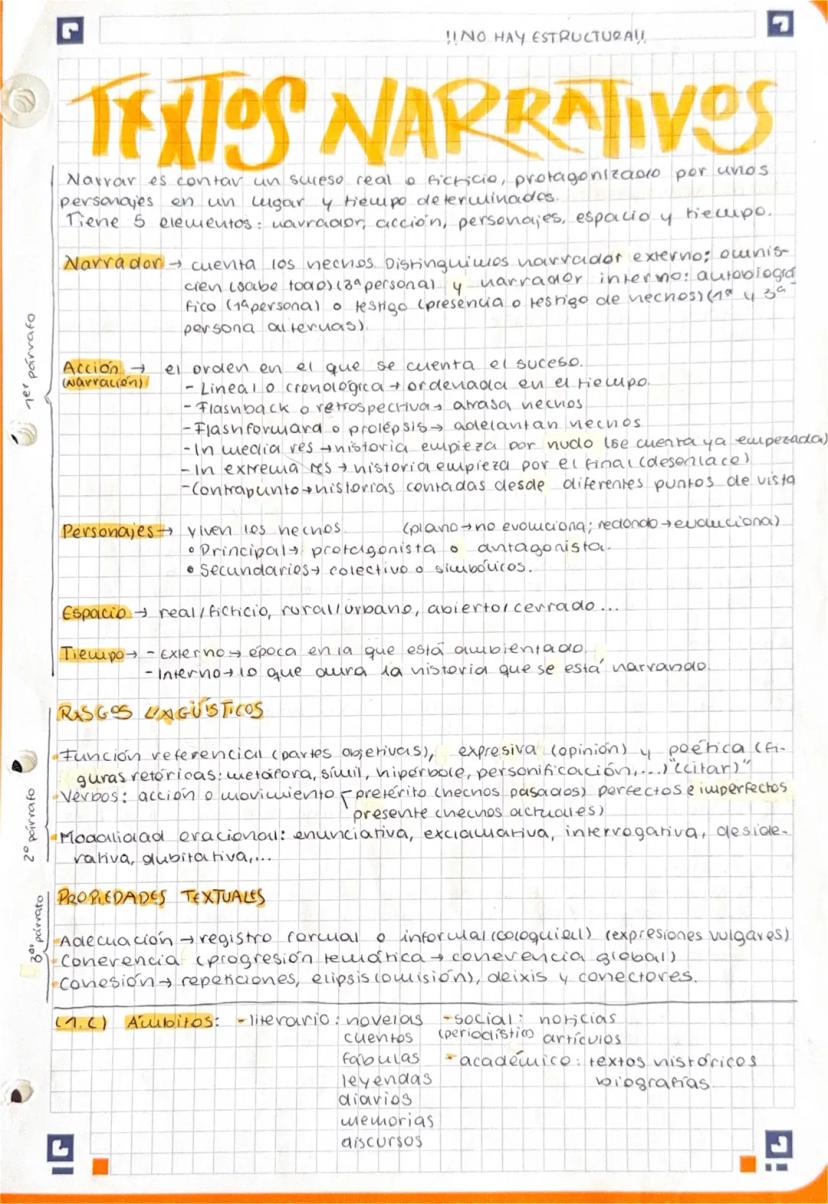 !!NO HAY ESTRUCTURA!!
TEXTOS NARRATIVOS
1er párrafo
Narrar es contar un suceso real o ficticio, protagonizado por unos
personajes en un lugar y tiempo determinados.
Tiene 5 elementos: narrador, acción, personajes, espacio y tiempo.
Narrador → cuenta los hechos Distinguimos narrador externo: omnis-
cien (sabe todo) (3ª persona) y narrador interno: autobiográ
fico (1ª persona) o testigo (presencia o testigo de hechos) (1ª y 3ª
persona alternas).
Acción → el orden en el que se cuenta el suceso.
(narración)
- Lineal o cronológica → ordenada en el tiempo.
- Flashback o retrospectiva → atrasa hechos
- Flashforward o prolépsis → adelantan hechos
- In media res → historia empieza por nudo (se cuenta ya empezada)
- In extrema res → historia empieza por el final (desenlace)
- Contrapunto → historias contadas desde diferentes puntos de vista
Personajes → viven los hechos (plano → no evoluciona; redondo → evoluciona)
• Principal → protagonista o antagonista.
• Secundarios → colectivo o simbólicos.
Espacio → real/ficticio, rural/urbano, abierto/cerrado...
Tiempo → - Externo → época en la que está ambientado.
- Interno → lo que dura la historia que se está narrando.
2º párrafo
RASGOS LINGÜÍSTICOS
- Función referencial (partes objetivas), expresiva (opinión) y poética (fi-
guras retóricas: metáfora, símil, hipérbole, personificación,...) "(citar)"
- Verbos: acción o movimiento pretérito (hechos pasados) perfectos e imperfectos
presente (hechos actuales)
- Modalidad oracional: enunciativa, exclamativa, interrogativa, deside-
rativa, dubitativa,...
3er párrafo
PROPIEDADES TEXTUALES
- Adecuación → registro formal o informal (coloquial) (expresiones vulgares)
- Coherencia (progresión temática → coherencia global)
- Cohesión → repeticiones, elipsis (omisión), deixis y conectores.
(1.c) Ámbitos: - literario: novelas - social: noticias
cuentos (periodístico) artículos
fábulas - académico: textos históricos
leyendas biografías
diarios
memorias
discursos